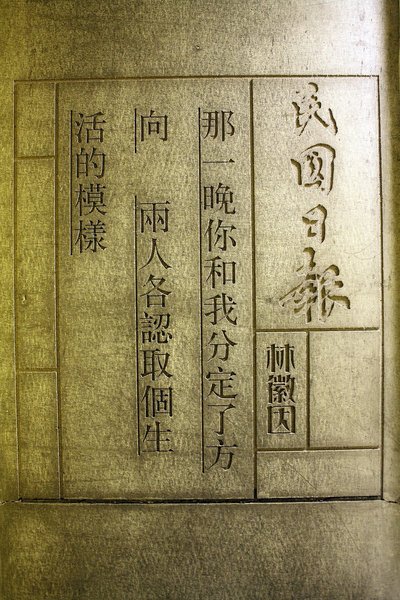 民國日報
林徽因
那一晚你和我分定了方
向 兩人各認取個生
活的模樣